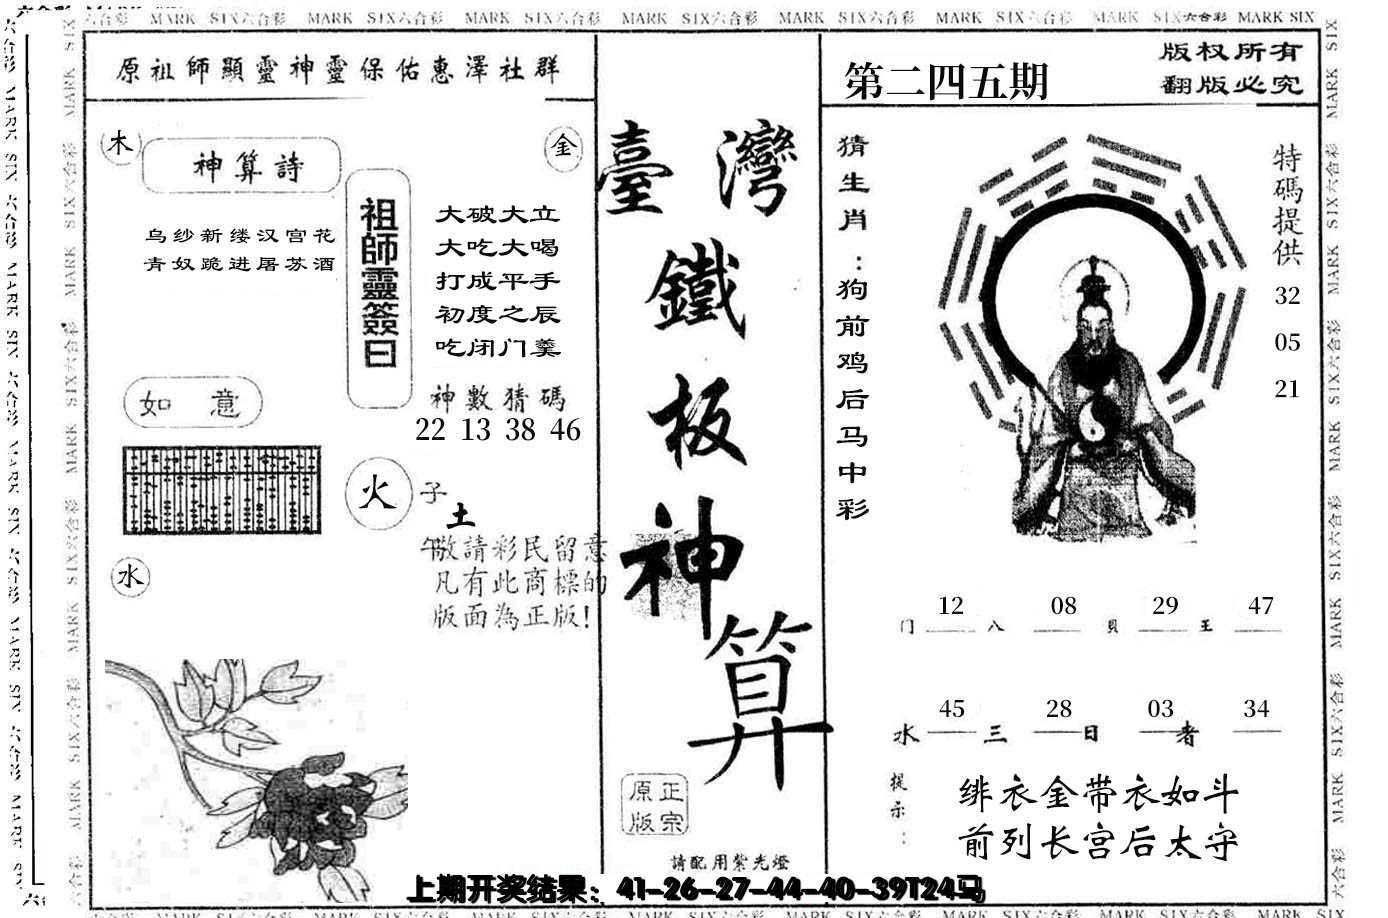 原祖師顯靈神靈保佑惠澤社群
木
神算詩
金
乌纱新缕汉宫花
青奴跪进屠苏酒
祖師靈簽曰
大破大立
大吃大喝
打成平手
初度之辰
吃闭门羹
神數猜碼
22 13 38 46
如意
火
子
土
午
敬請彩民留意
凡有此商標的
版面為正版!
水
臺灣
鐵
板
神
算
正宗
原版
請配用紫光燈
第二四五期
版权所有
翻版必究
猜生肖:狗前鸡后马中彩
特碼提供
32
05
21
门 12 八 08 贝 29 王 47
水 45 三 28 日 03 者 34
提示:
绯衣金带衣如斗
前列长宫后太守
上期开奖结果：41-26-27-44-40-39T24马
MARK SIX六合彩 MARK SIX六合彩 MARK SIX六合彩 MARK SIX六合彩 MARK SIX六合彩 MARK SIX六合彩 MARK SIX六合彩 MARK SIX